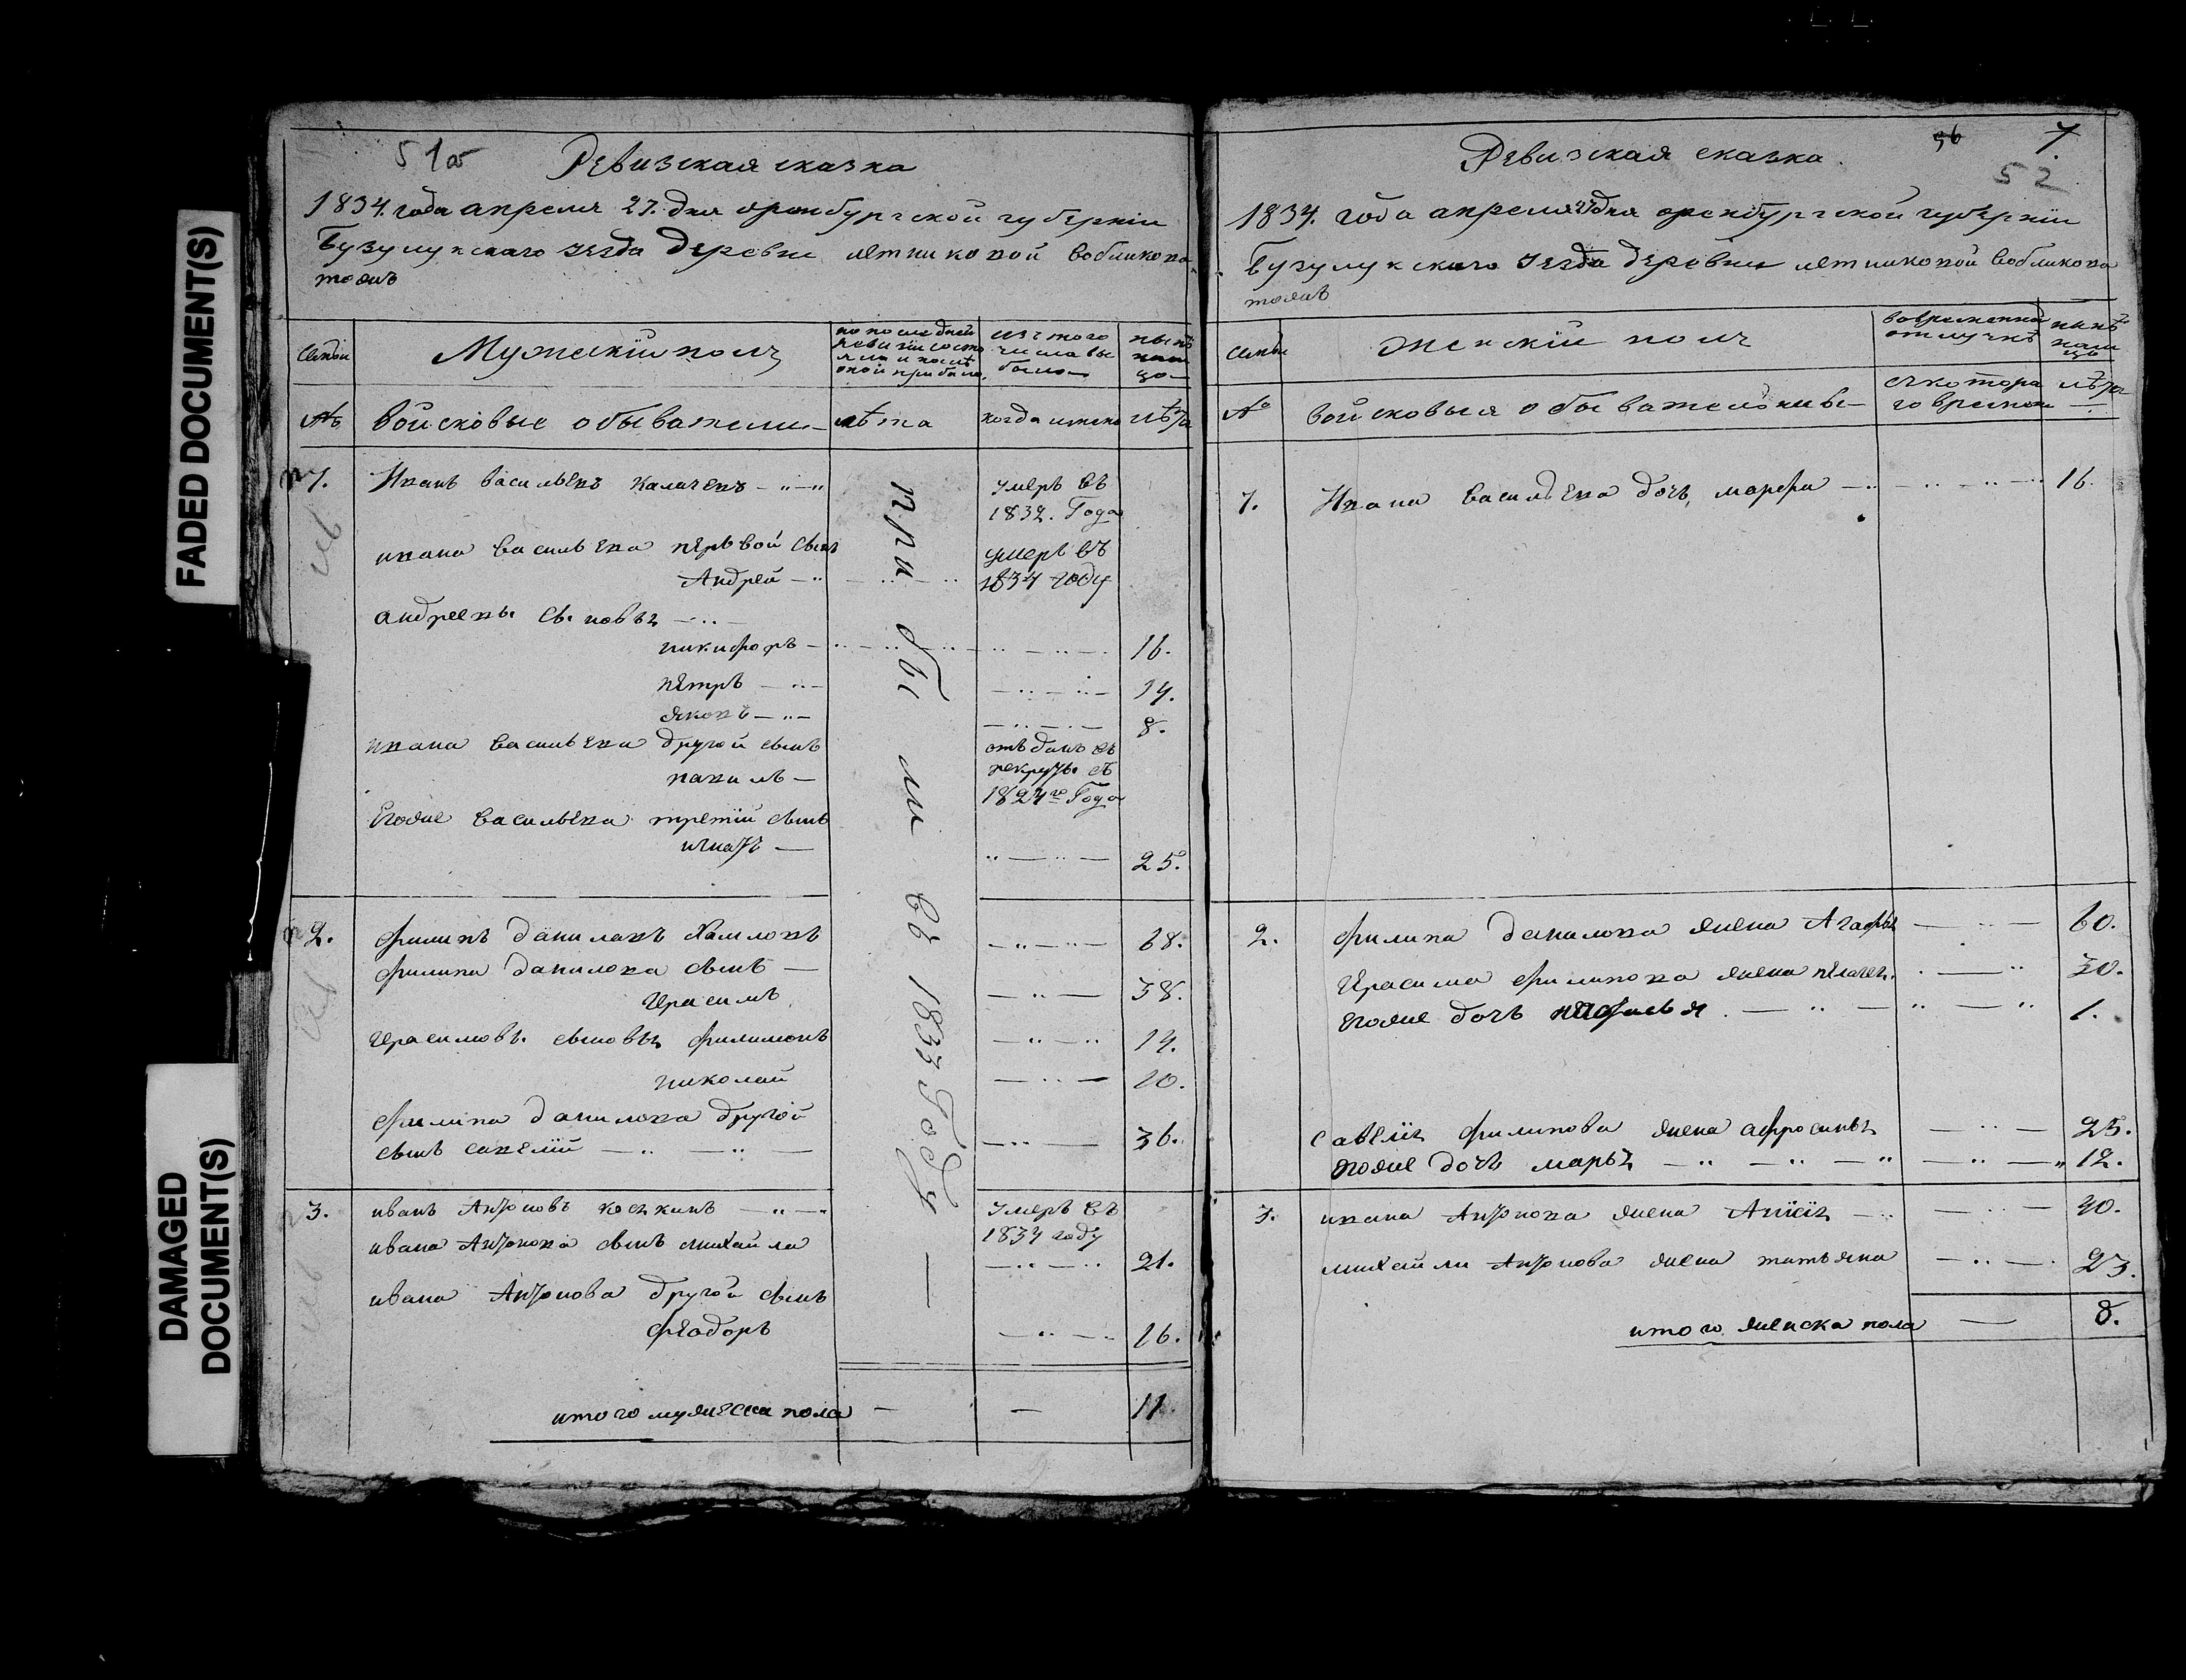 FADED DOCUMENT(S)
DAMAGED
DOCUMENT(S)
51об
Ревизская сказка
1834. года апреля 27. дня оренбургской губернiи
Бузулукскаго уезда деревни летниковой
Семьи
Мужескiй полъ
по последней
ревизiи состо
яло и после
оной прибыло.
изъ того
числа вы
было
ныне
на ли
цо
№
войсковые обыватели
лѣта
когда имено
лѣта
1.
Иванъ васильевъ Калачевъ
умеръ въ
1832. Года
ивана васильева первой сынъ
Андрей
умеръ въ
1834 году
андреевы сыновья
никифоръ
16.
петръ
14.
яковъ
8.
ивана васильева другой сынъ
павилъ
отъданъ въ
рекруты въ
1824го Года
Егоже васильева третiй сынъ
игнатъ
25.
прибыли въ 1833 Году
2.
филипъ даниловъ
68.
филипа данилова сынъ
Герасимъ
38.
Герасимовы сыновья филимонъ
14.
николай
10.
филипа данилова другой
сынъ савелiй
36.
3.
иванъ Антоновъ
умеръ въ
1834 году
ивана Антонова сынъ михайла
21.
ивана Антонова другой сынъ
феодоръ
16.
итого мужеска пола
11.
56
7.
52
Ревизская сказка.
1834. года апреля 27 дня оренбургской губернiи
Бузулукскаго уезда деревни летниковой
Семьи
женскiй полъ
вовременной
отлучке
ныне
нали
цо
№
войсковыя обывательницы
съ котора
го времени
лѣта
1.
Ивана васильева дочь, марфа
16.
2.
филипа данилова жена Агафья
60.
Герасима филипова жена пелагея
30.
Егоже дочь
1.
савелiя филипова жена афросинья
25.
Егоже дочь марья
12.
3.
ивана Антонова жена
40.
михайлы Антонова жена татьяна
23.
итого женска пола
8.